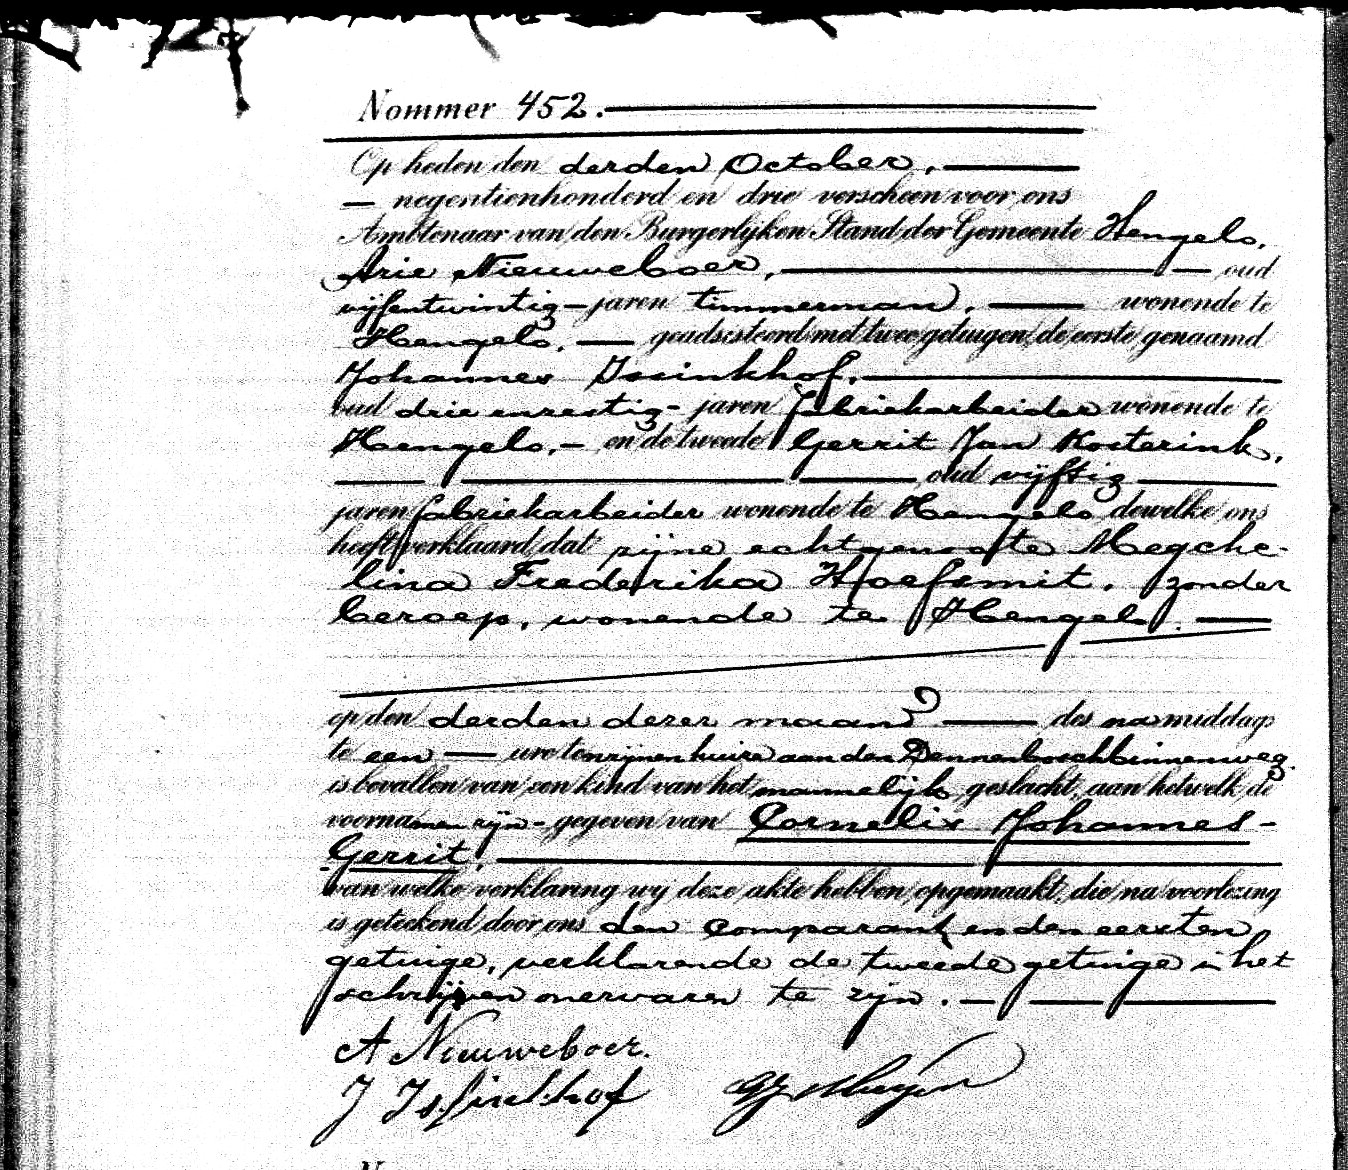 Nommer 452.
Op heden den derden October,
negentienhonderd en drie verscheen voor ons
Ambtenaar van den Burgerlijken Stand der Gemeente Hengelo,
Arie Nieuweboer, oud
vijfentwintig jaren timmerman, wonende te
Hengelo, geadsisteerd met twee getuigen, de eerste genaamd
Johannes Issinkhof,
oud drie en zestig jaren fabriekarbeider wonende te
Hengelo, en de tweede Gerrit Jan Kosterink,
oud vijftig
jaren fabriekarbeider wonende te Hengelo dewelke ons
heeft verklaard, dat zijne echtgenoote Megche-
lina Frederika Hoefsmit, zonder
beroep, wonende te Hengelo,
op den derden dezer maand des namiddags
te een ure ten zijnen huize aan den Dennenboschbinnenweg
is bevallen van een kind van het mannelijk geslacht, aan hetwelk de
voornamen zijn gegeven van Cornelis Johannes
Gerrit,
van welke verklaring wij deze akte hebben opgemaakt, die na voorlezing
is geteekend door ons den comparant en den eersten
getuige, verklarende de tweede getuige in het
schrijven onervaren te zijn.
A Nieuweboer.
J Issinkhof